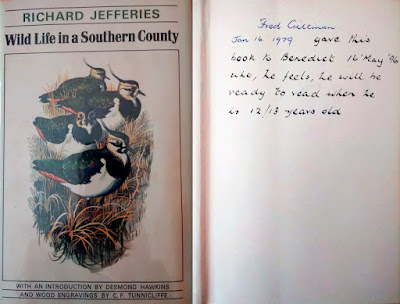 RICHARD JEFFERIES
Wild Life in a Southern County
WITH AN INTRODUCTION BY DESMOND HAWKINS
AND WOOD ENGRAVINGS BY C. F. TUNNICLIFFE
Fred
Jan 16. 1979 gave this
book to Benedict 16 May '96
who, he feels, he will be
ready to read when he
is 12/13 years old